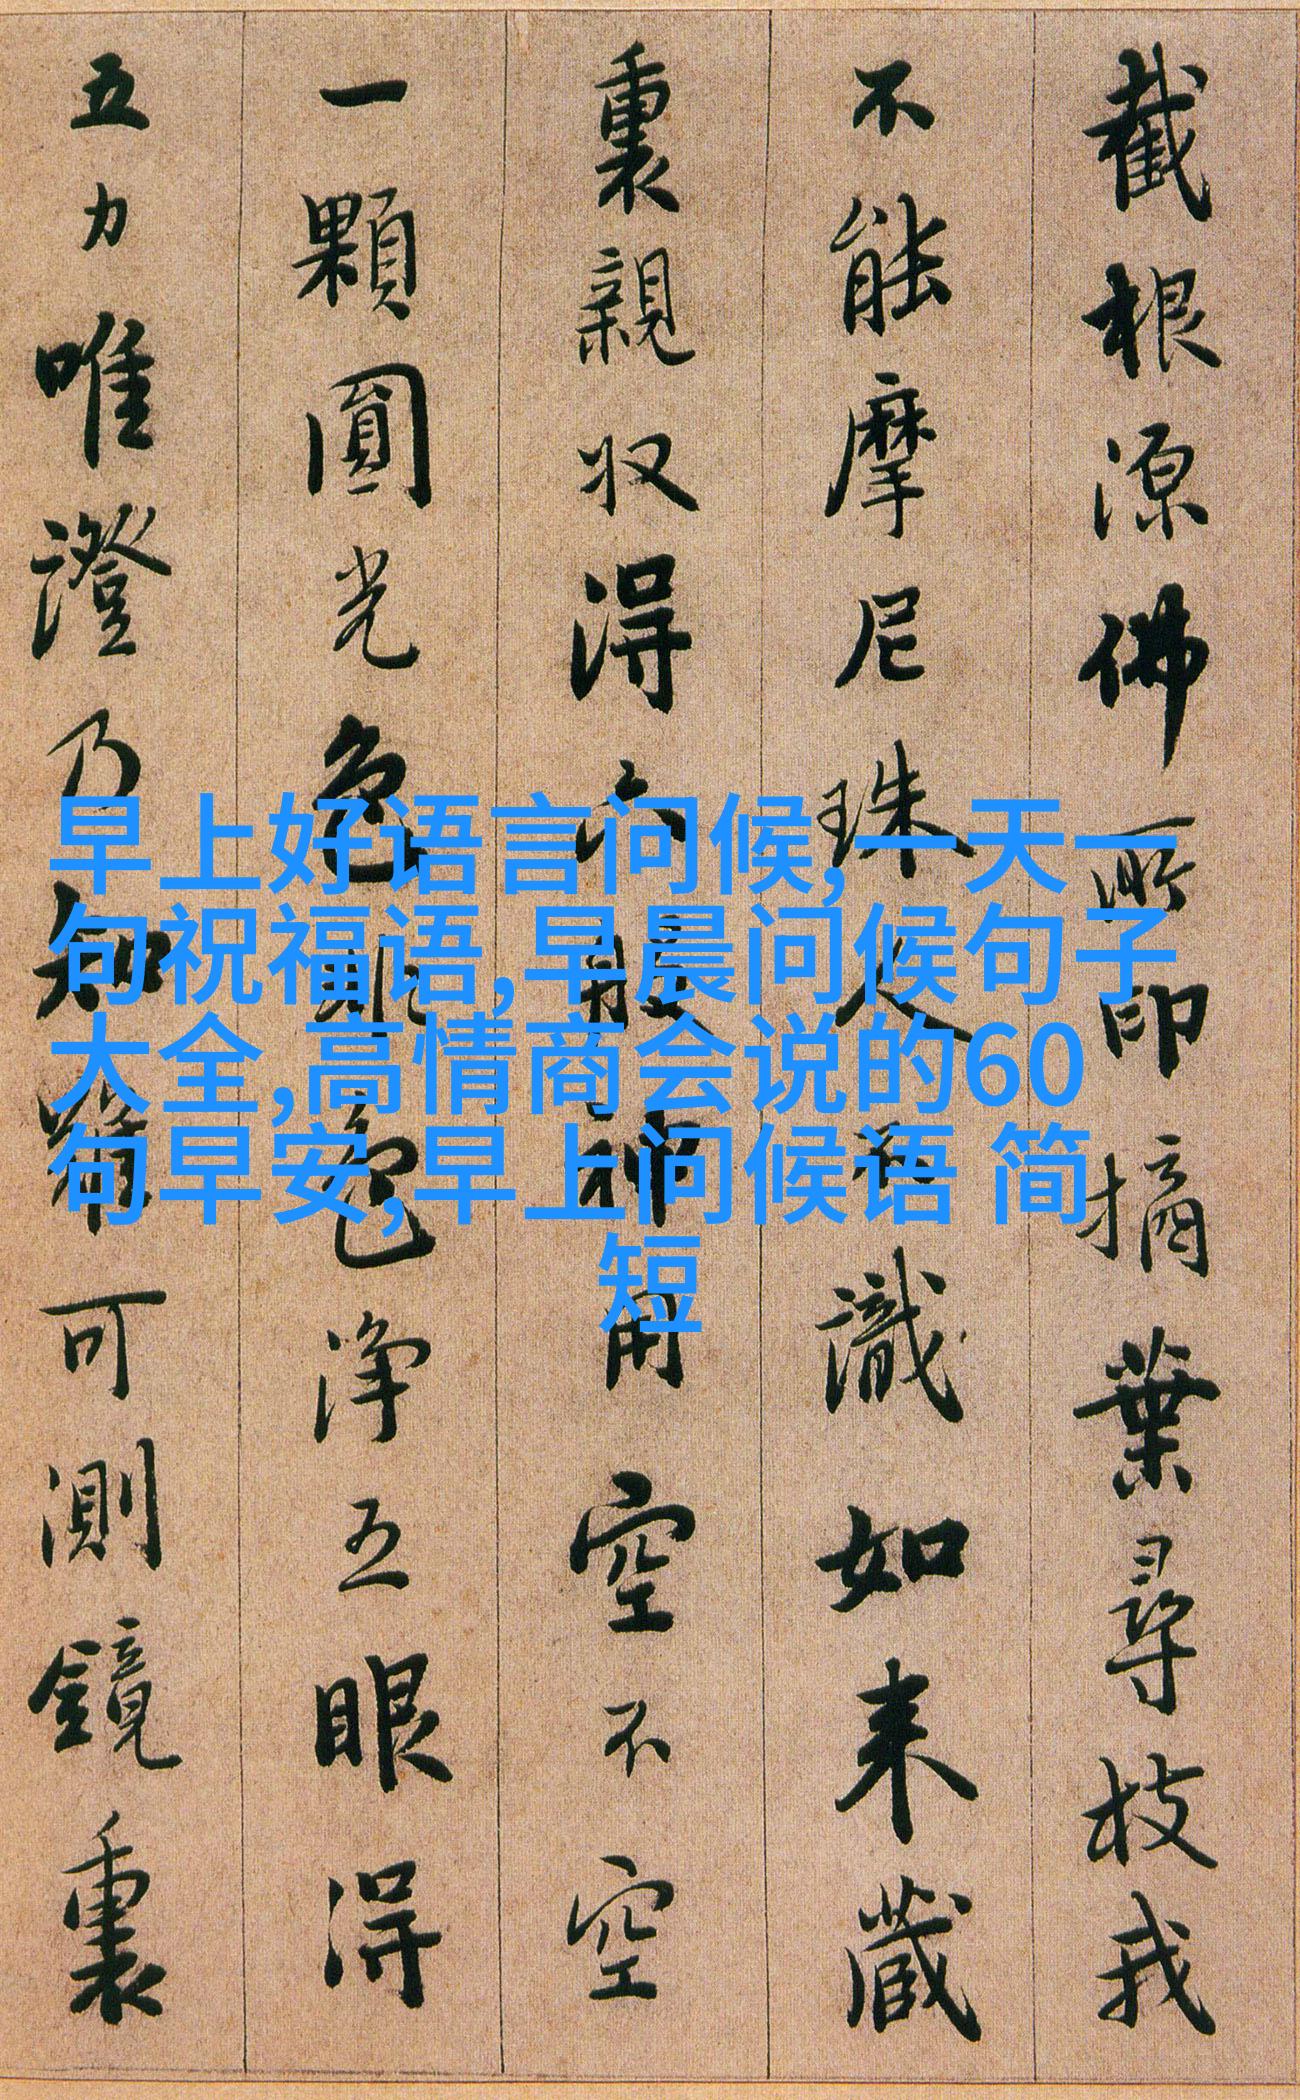 截根源佛所印摘葉尋枝我
不能摩尼珠人不識如来蔵
裏親収得六般神用空不空
一顆圓光色非色淨五眼得
五力唯證乃知難可測鏡裏
早上好语言问候,一天一
句祝福语,早晨问候句子
大全,高情商会说的60
句早安,早上问候语 简
短